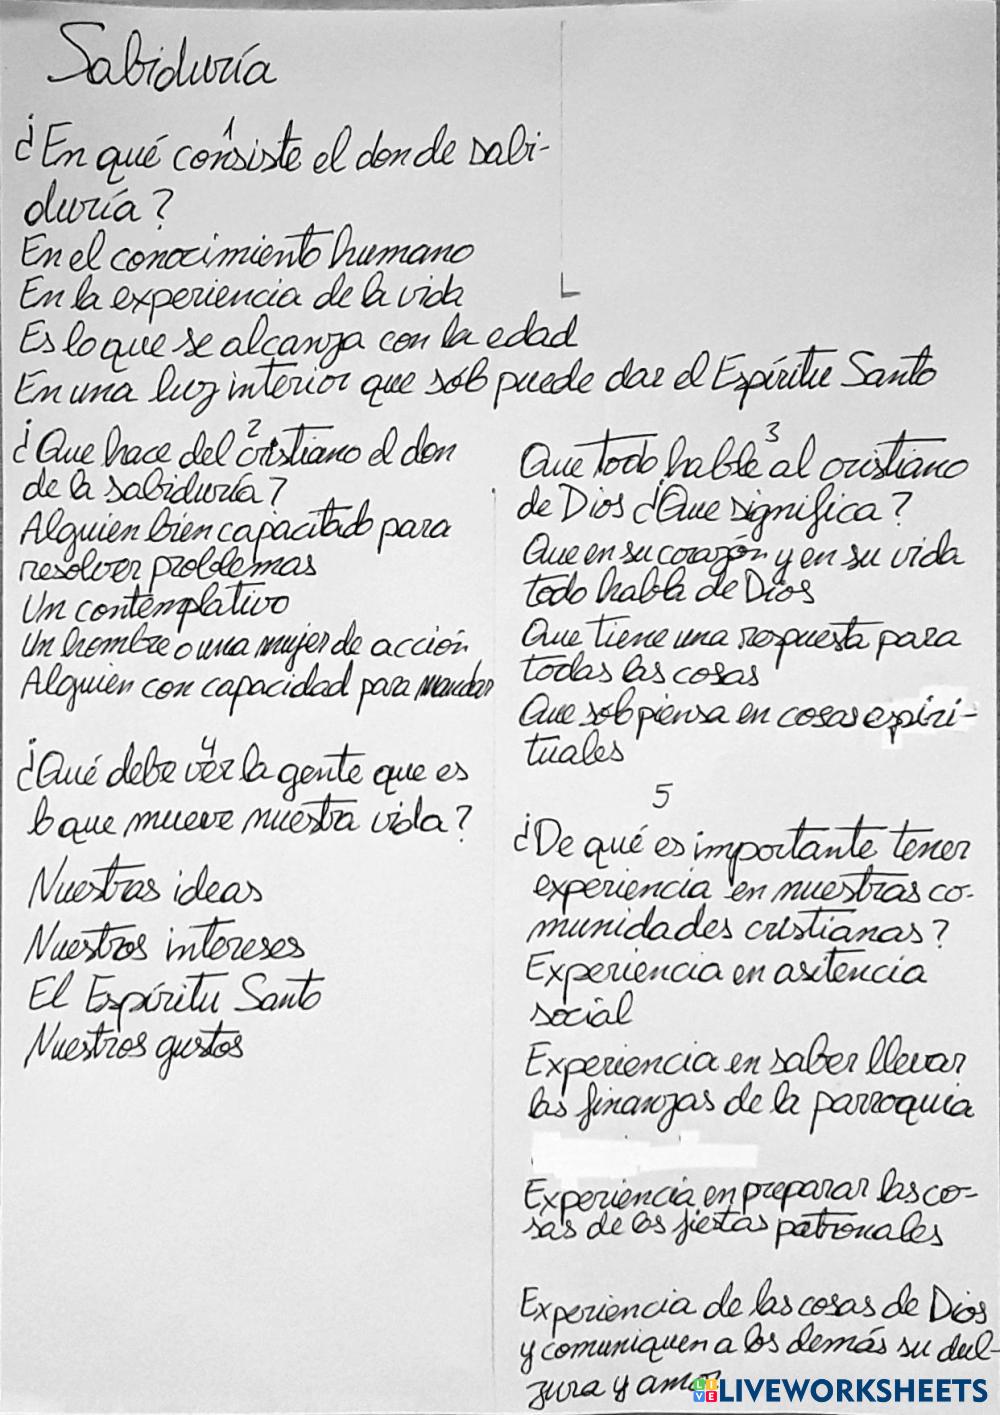 Sabiduría
1
¿En qué consiste el don de sabi-
duría?
En el conocimiento humano
En la experiencia de la vida
Es lo que se alcanza con la edad
En una luz interior que sólo puede dar el Espíritu Santo
2
¿Que hace del cristiano el don
de la sabiduría?
Alguien bien capacitado para
resolver problemas
Un contemplativo
Un hombre o una mujer de acción
Alguien con capacidad para mandar
3
Que todo hable al cristiano
de Dios ¿Que significa?
Que en su corazón y en su vida
todo habla de Dios
Que tiene una respuesta para
todas las cosas
Que sólo piensa en cosas espiri-
tuales
4
¿Qué debe ver la gente que es
lo que mueve nuestra vida?
Nuestras ideas
Nuestros intereses
El Espíritu Santo
Nuestros gustos
5
¿De qué es importante tener
experiencia en nuestras co-
munidades cristianas?
Experiencia en asitencia
social
Experiencia en saber llevar
las finanzas de la parroquia
Experiencia en preparar las co-
sas de los fiestas patronales
Experiencia de las cosas de Dios
y comuniquen a los demás su dul-
zura y amor
LIVEWORKSHEETS